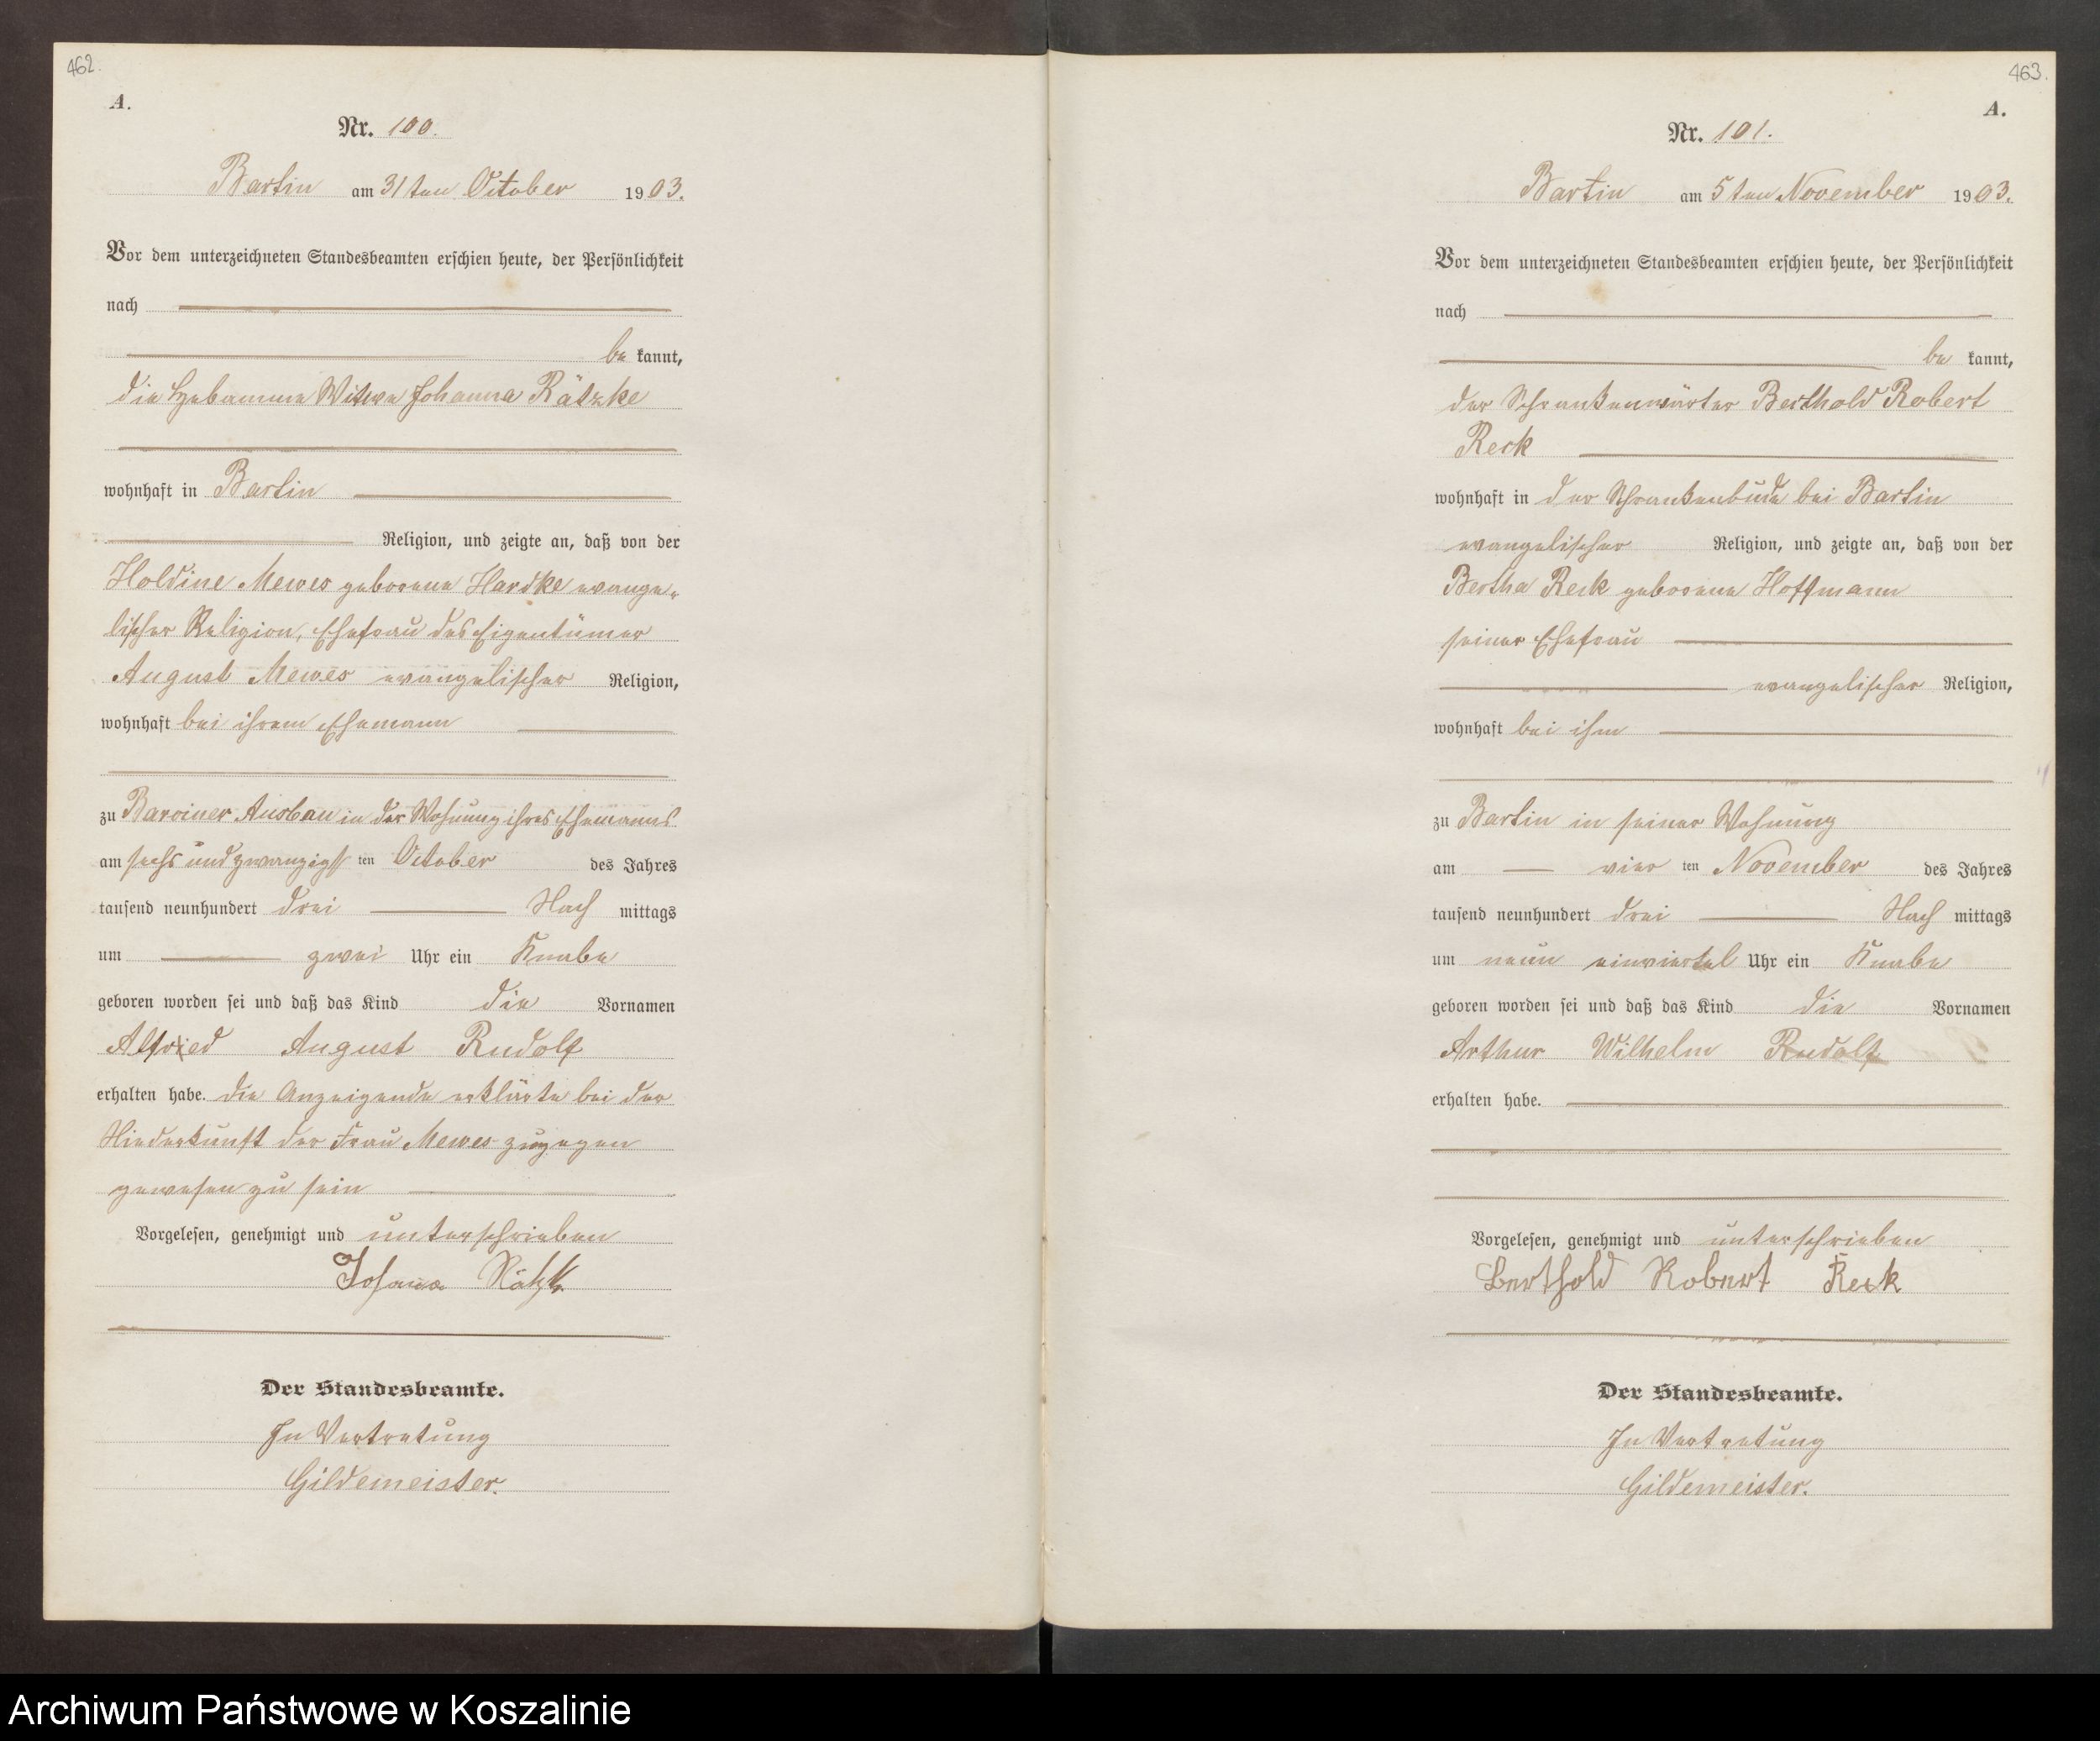 462.
A.
Nr. 100.
Bartin am 31ten October 1903.
Vor dem unterzeichneten Standesbeamten erschien heute, der Persönlichkeit
nach
be kannt,
die Hebamme Witwe Johanna Rätzke
wohnhaft in Bartin
Religion, und zeigte an, daß von der
Holdine Mewes geborene Hardke evange-
lischer Religion, Ehefrau des Eigentümer
August Mewes evangelischer Religion,
wohnhaft bei ihrem Ehemann
zu Barviner Ausbau in der Wohnung ihres Ehemanns
am sechs und zwanzigsten October des Jahres
tausend neunhundert drei Nach mittags
um zwei Uhr ein Knabe
geboren worden sei und daß das Kind die Vornamen
Alfried August Rudolf
erhalten habe. Die Anzeigende erklärte bei der
Niederkunft der Frau Mewes zugegen
gewesen zu sein
Vorgelesen, genehmigt und unterschrieben
Johana Rätzk
Der Standesbeamte.
In Vertretung
Gildemeister.
463.
A.
Nr. 101.
Bartin am 5ten November 1903.
Vor dem unterzeichneten Standesbeamten erschien heute, der Persönlichkeit
nach
be kannt,
der Schrankenwärter Berthold Robert
Reck
wohnhaft in der Schrankenbude bei Bartin
evangelischer Religion, und zeigte an, daß von der
Bertha Reck geborene Hoffmann
seiner Ehefrau
evangelischer Religion,
wohnhaft bei ihm
zu Bartin in seiner Wohnung
am vier ten November des Jahres
tausend neunhundert drei Nach mittags
um neun einviertel Uhr ein Knabe
geboren worden sei und daß das Kind die Vornamen
Arthur Wilhelm Rudolf
erhalten habe.
Vorgelesen, genehmigt und unterschrieben
Berthold Robert Reck
Der Standesbeamte.
In Vertretung
Gildemeister.
Archiwum Państwowe w Koszalinie